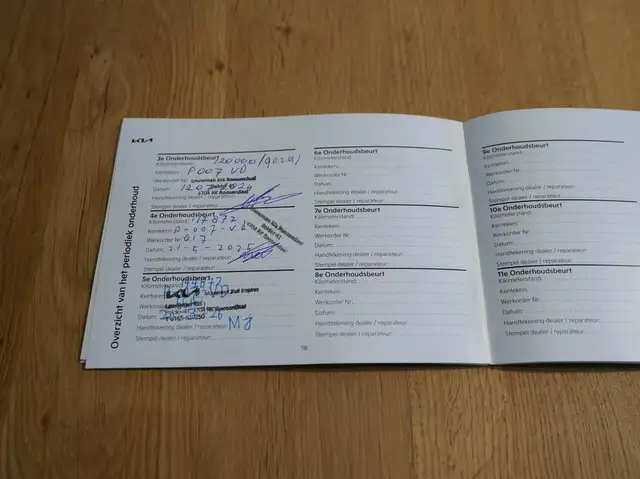 KIA
Overzicht van het periodiek onderhoud
3e Onderhoudsbeurt
Kilometerstand:
Kenteken: P007 VD
Werkorder Nr: Louwman Kia Roosendaal
Datum:
4709 RK Roosendaal
Handtekening dealer / reparateur:
Stempel dealer / reparateur:
4e Onderhoudsbeurt
Kilometerstand: 17872
Kenteken: P-007-V
Werkorder Nr: 017
Datum: 21-5-2025
Handtekening dealer / reparateur:
Stempel dealer / reparateur:
5e Onderhoudsbeurt
Kilometerstand:
Kenteken:
KIA Movement that inspires
Werkorder Nr:
Datum:
0165-
Handtekening dealer / reparateur:
Stempel dealer / reparateur:
6e Onderhoudsbeurt
Kilometerstand:
Kenteken:
Werkorder Nr:
Datum:
Handtekening dealer / reparateur:
Stempel dealer / reparateur:
7e Onderhoudsbeurt
Kilometerstand:
Kenteken:
Werkorder Nr:
Datum:
Handtekening dealer / reparateur:
Stempel dealer / reparateur:
8e Onderhoudsbeurt
Kilometerstand:
Kenteken:
Werkorder Nr:
Datum:
Handtekening dealer / reparateur:
Stempel dealer / reparateur:
18
9e Onderhoudsbeurt
Kilometerstand:
Kenteken:
Werkorder Nr:
Datum:
Handtekening dealer / reparateur:
Stempel dealer / reparateur:
10e Onderhoudsbeurt
Kilometerstand:
Kenteken:
Werkorder Nr:
Datum:
Handtekening dealer / reparateur:
Stempel dealer / reparateur:
11e Onderhoudsbeurt
Kilometerstand:
Kenteken:
Werkorder Nr:
Datum:
Handtekening dealer / reparateur:
Stempel dealer / reparateur: